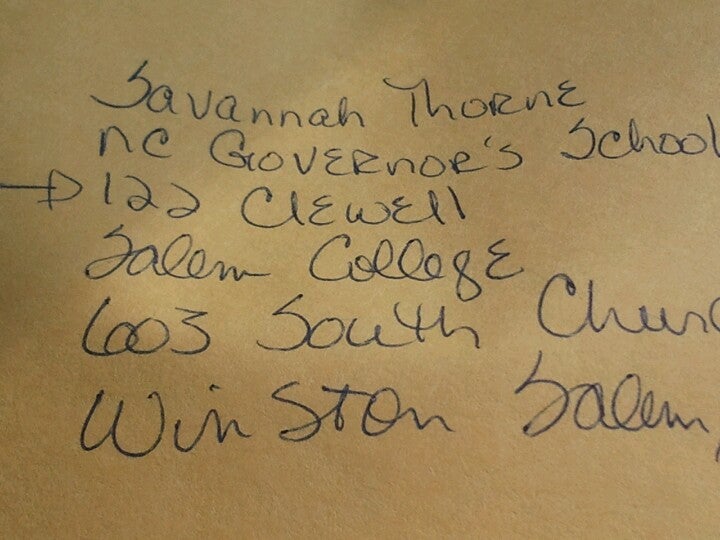 Savannah Thorne
NC Governor's School
→ 122 Clewell
Salem College
603 South Churc
Winston Salem,